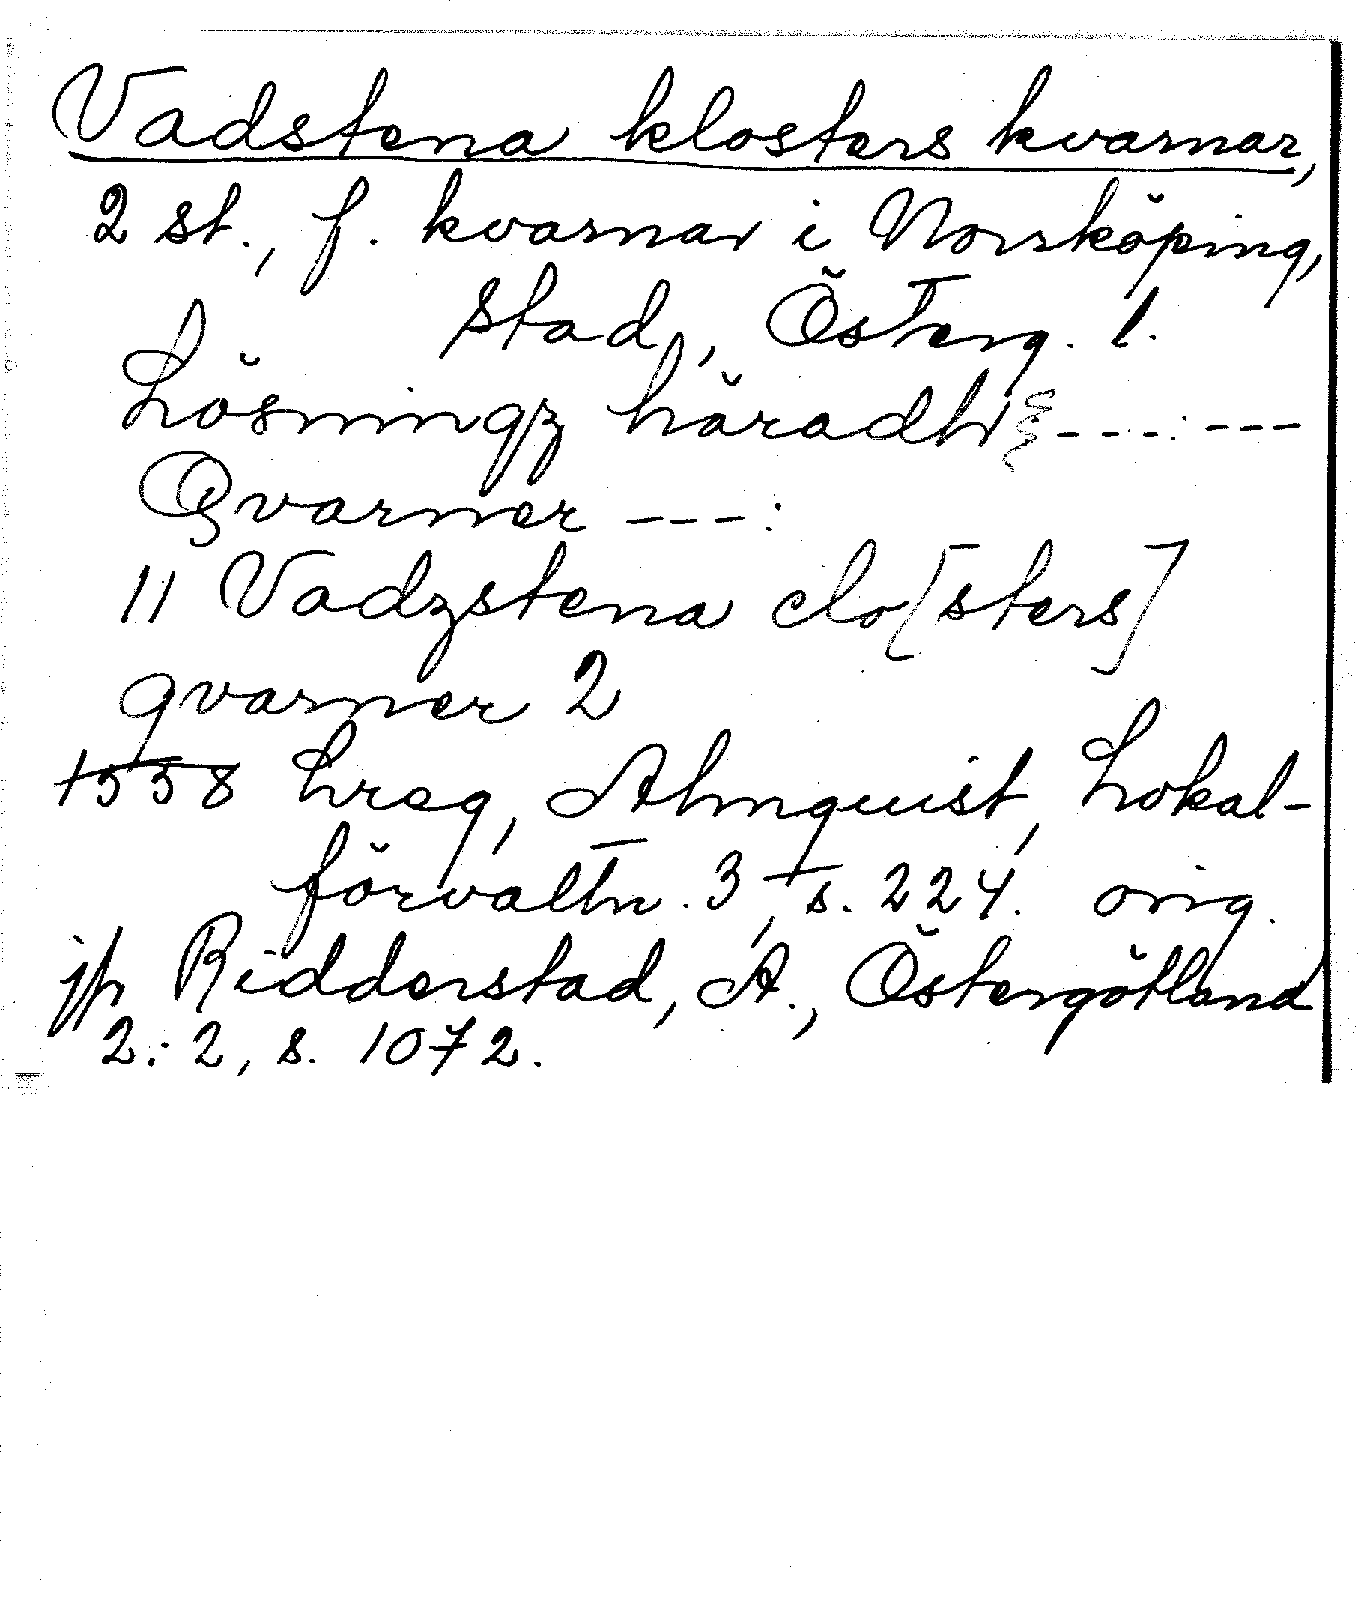 Vadstena klosters kvarnar,
2 st., f. kvarnar i Norrköping,
stad, Österg. l.
Lösningz häradh ---: ---
Qvarner ---:
11 Vadzstena clo[sters]
qvarner 2
1558 hreg, Almquist, Lokal-
förvaltn. 3, s. 224. orig.
jfr Ridderstad, A., Östergötland
2:2, s. 1072.